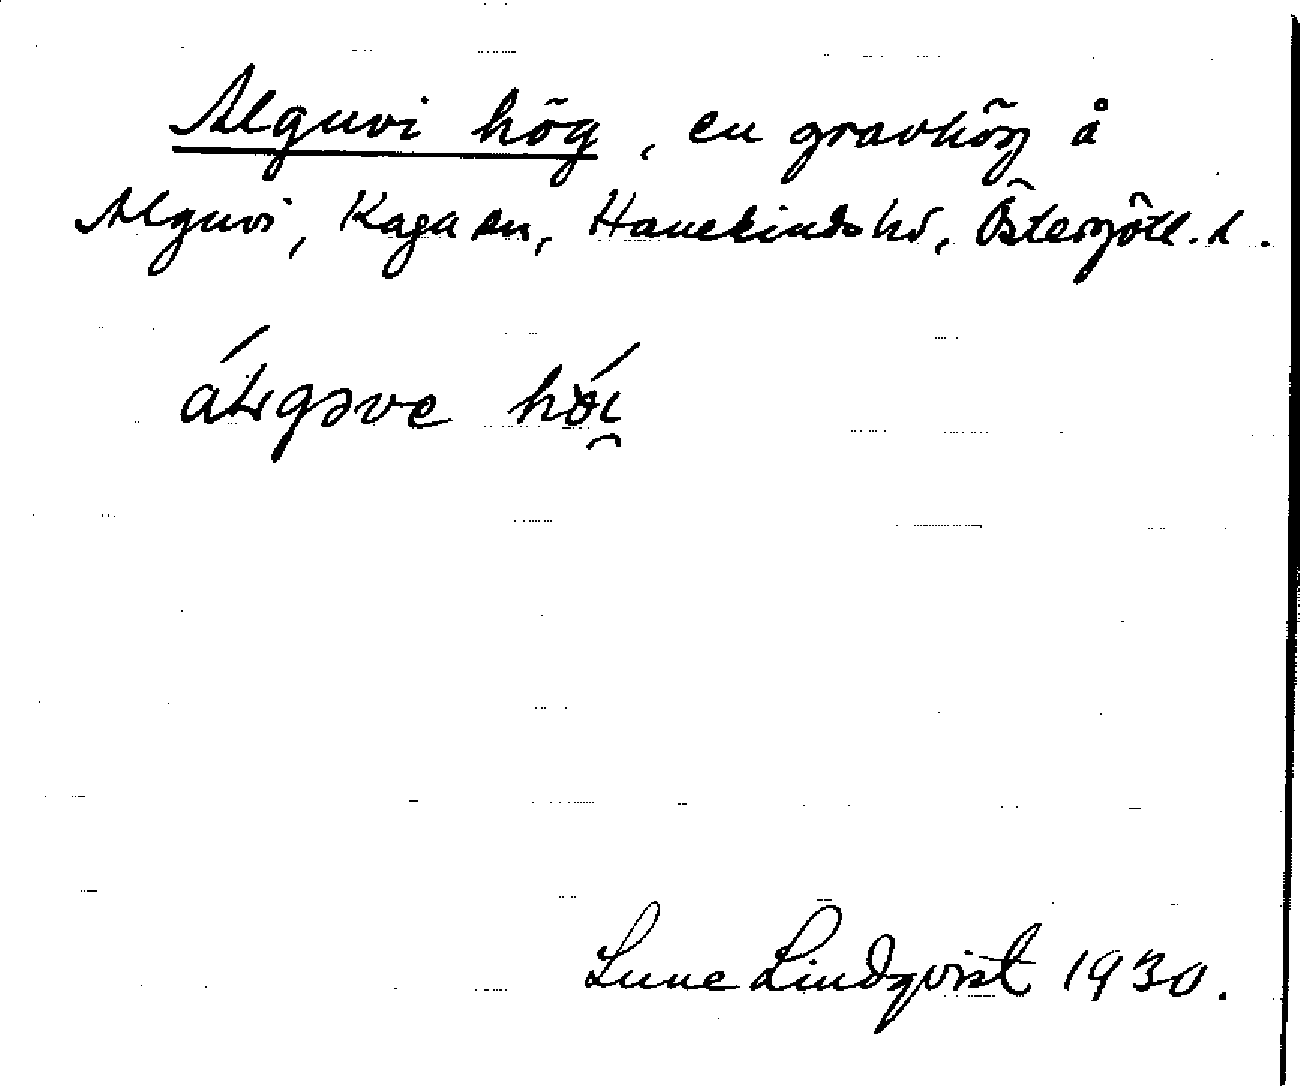 Alguvi hög, en gravhög å
Alguvi, Kaga sn, Hanekinds hd, Östergötl. l.
Sune Lindqvist 1930.